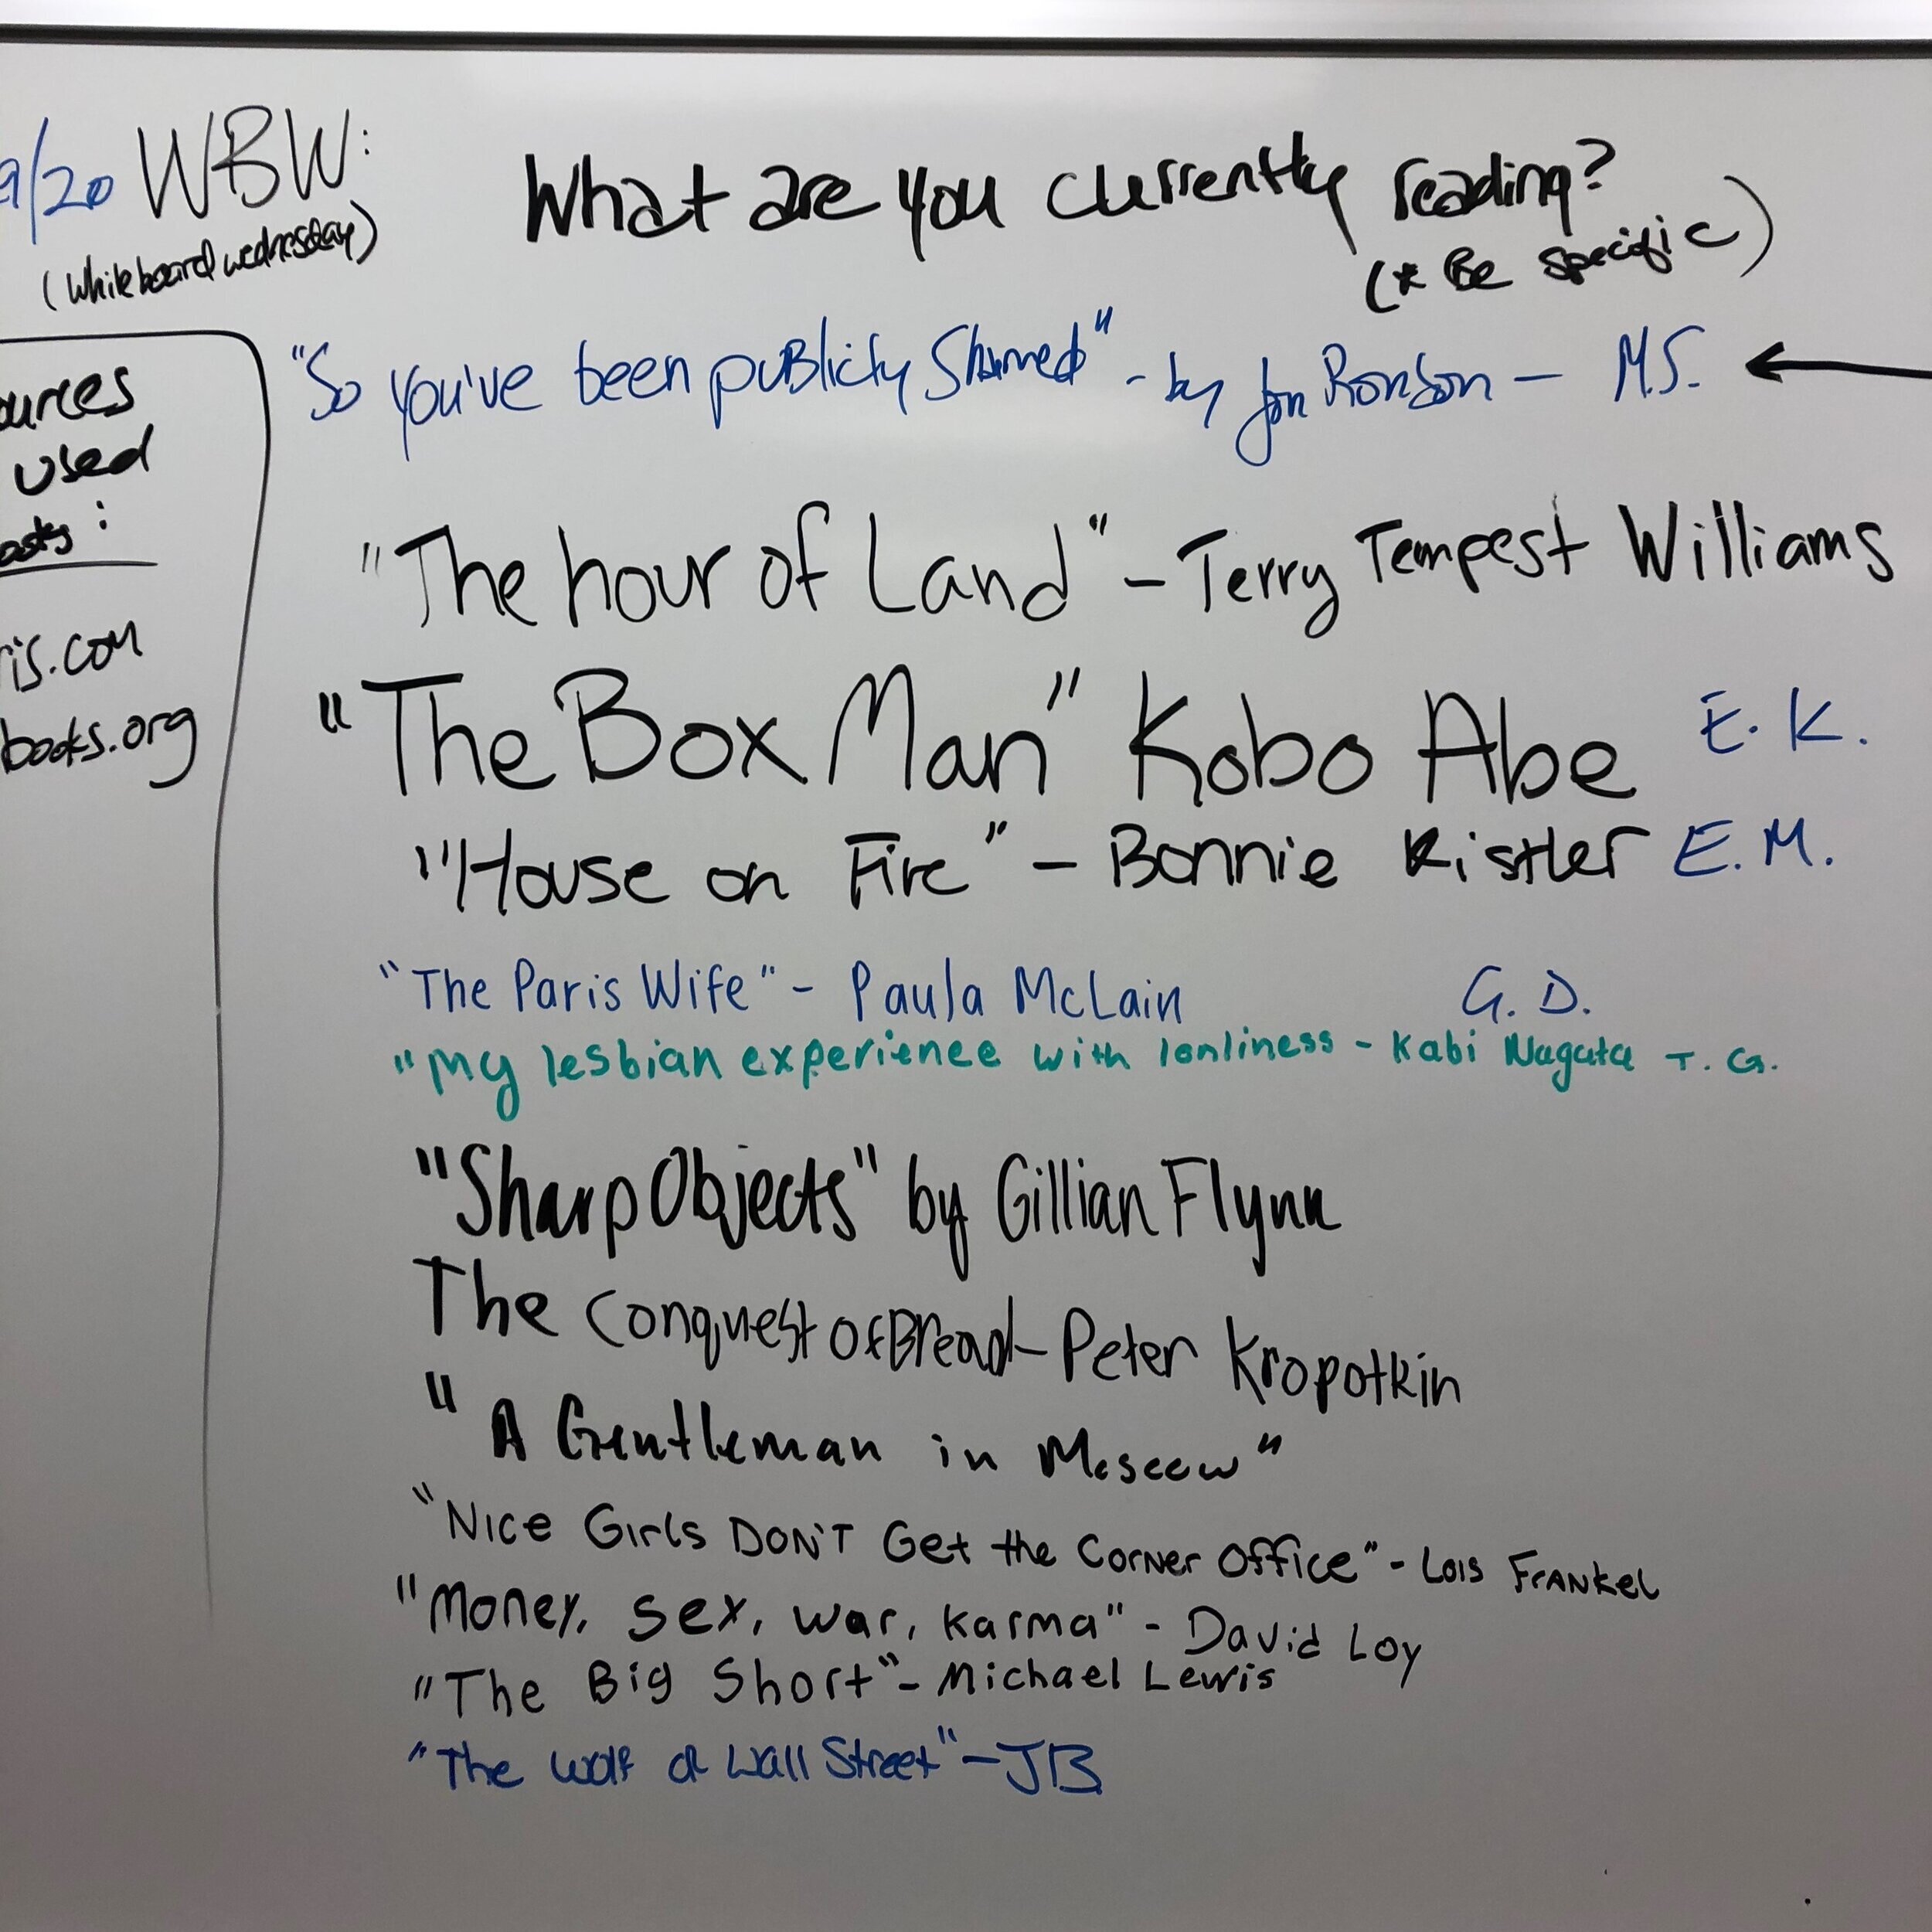 9/20 WBW:
(Whiteboard wednesday)
What are you currently reading?
(* Be specific)
ources
used
asks:
is.com
books.org
"So you've been publicly Shamed" - by Jon Ronson — M.S.
"The hour of Land" - Terry Tempest Williams
"The Box Man" Kobo Abe E. K.
"House on Fire" - Bonnie Kistler E. M.
"The Paris Wife" - Paula McLain G. D.
"My lesbian experience with lonliness - Kabi Nagata T. G.
"Sharp Objects" by Gillian Flynn
The Conquest Of Bread - Peter Kropotkin
"A Gentleman in Moscow"
"Nice Girls DON'T Get the Corner Office" - Lois Frankel
"Money, sex, war, karma" - David Loy
"The Big Short" - Michael Lewis
"The Wolf of Wall Street" - JB